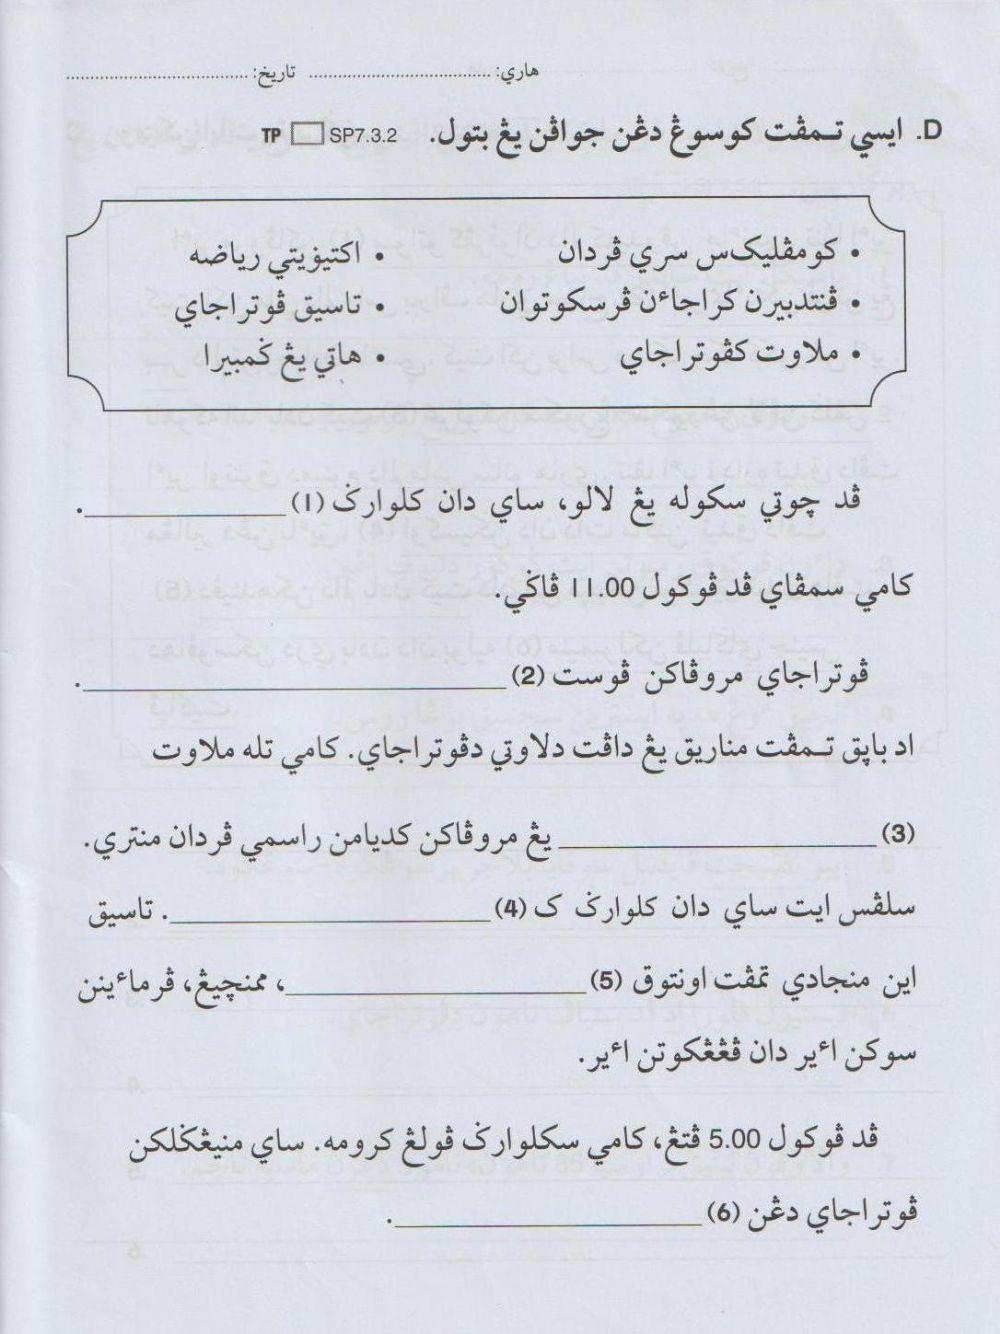 هاري: ........................................ تاريخ: ........................................
D. ايسي تمڤت كوسوڠ دڠن جواڤن يڠ بتول. SP7.3.2 TP
• كومڤليكس سري ڤردان • اكتيۏيتي رياضه
• ڤنتدبيرن كراجاٴن ڤرسكوتوان • تاسيق ڤوتراجاي
• ملاوت كڤوتراجاي • هاتي يڠ ݢمبيرا
ڤد چوتي سكوله يڠ لالو، ساي دان كلوارݢ (1) ____________.
كامي سمڤاي ڤد ڤوكول 11.00 ڤاݢي.
ڤوتراجاي مروڤاكن ڤوست (2) ____________.
اد باڽق تمڤت مناريق يڠ داڤت دلاوتي دڤوتراجاي. كامي تله ملاوت
(3) ____________ يڠ مروڤاكن كديامن راسمي ڤردان منتري.
سلڤس ايت ساي دان كلوارݢ ك (4) ____________. تاسيق
اين منجادي تمڤت اونتوق (5) ____________، ممنچيڠ، ڤرماٴينن
سوكن اٴير دان ڤڠڠكوتن اٴير.
ڤد ڤوكول 5.00 ڤتڠ، كامي سكلوارݢ ڤولڠ كرومه. ساي منيڠݢلكن
ڤوتراجاي دڠن (6) ____________.